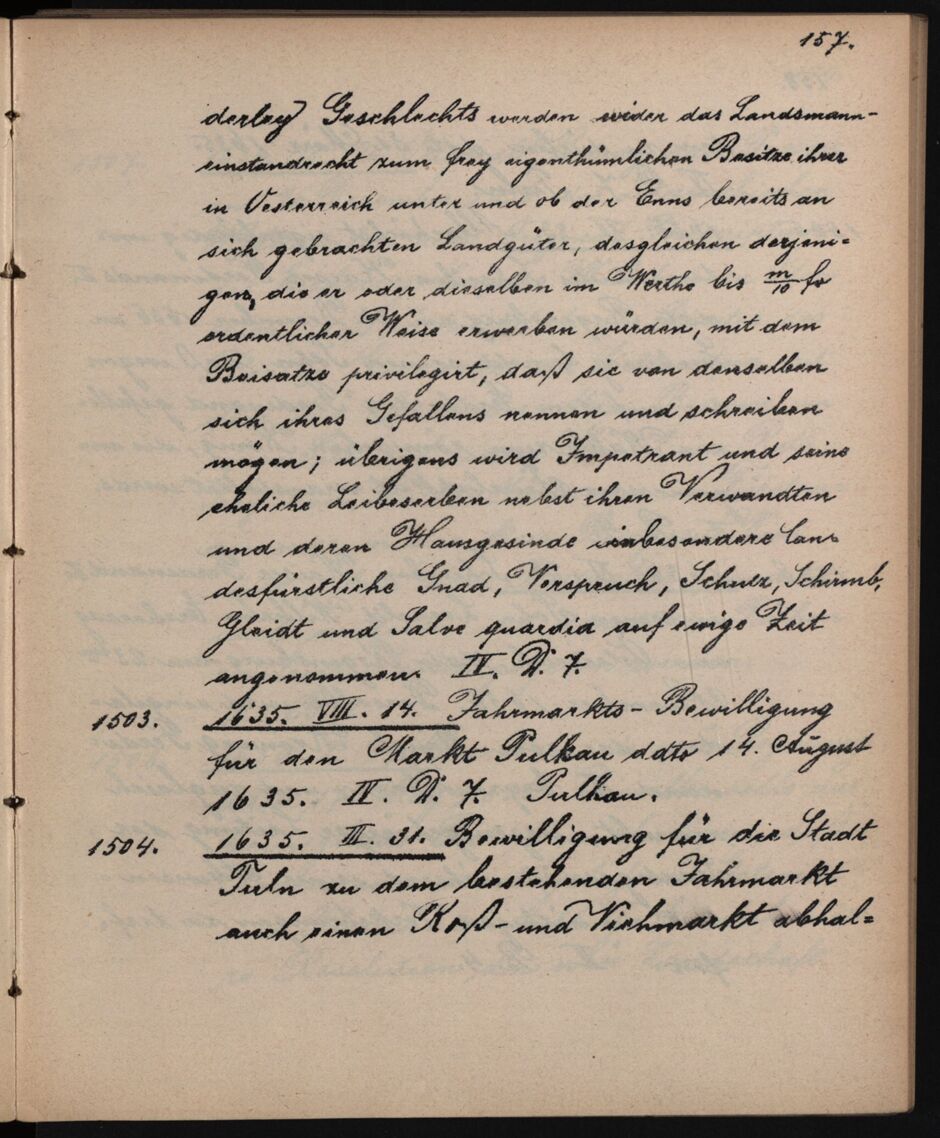 157.
derley Geschlechts werden wider das Landsmann-
einstandrecht zum frey eigenthümlichen Besitze ihrer
in Oesterreich unter und ob der Enns bereits an
sich gebrachten Landgüter, desgleichen derjeni=
gen, die er oder dieselben im Werthe bis m/10 fo
ordentlicher Weise erwerben würden, mit dem
Beisatze privilegirt, daß sie von denselben
sich ihres Gefallens nennen und schreiben
mögen; übrigens wird Impetrant und seine
eheliche Leibeserben nebst ihren Verwandten
und deren Hausgesinde insbesondere lan-
desfürstliche Gnad, Verspruch, Schutz, Schirmb,
Gleidt und Salve quardia auf ewige Zeit
angenommen. IV. D. 7.
1503. 1635. VIII. 14. Jahrmarkts-Bewilligung
für den Markt Pulkau ddto 14. August
1635. IV. D. 7. Pulkau.
1504. 1635. III. 31. Bewilligung für die Stadt
Tuln zu dem bestehenden Jahrmarkt
auch einen Roß- und Viehmarkt abhal=